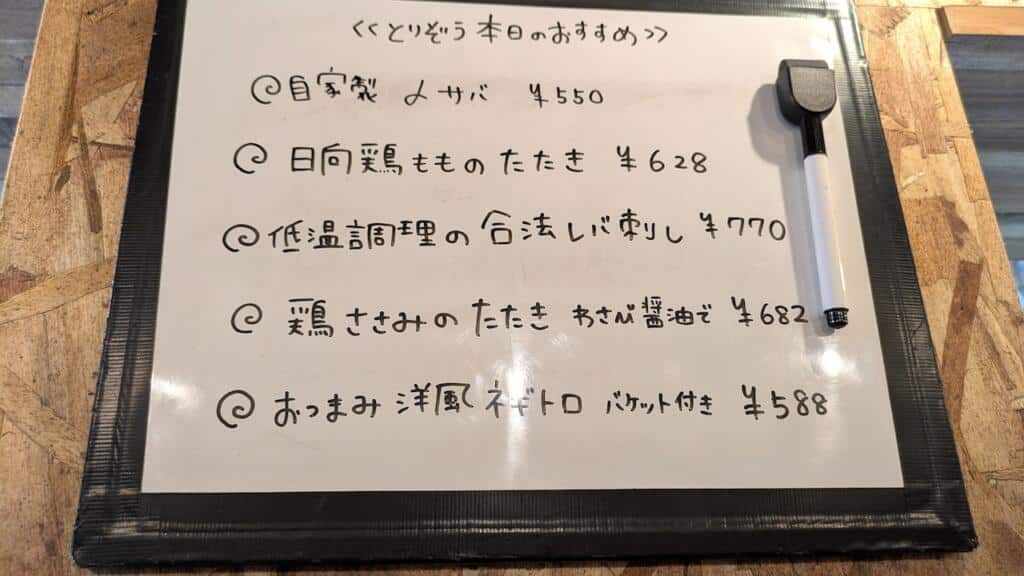 <<とりぞう 本日のおすすめ>>
自家製 〆サバ ¥550
日向鶏もものたたき ¥628
低温調理の合法レバ刺し ¥770
鶏ささみのたたき わさび醤油で ¥682
おつまみ 洋風ネギトロ バケット付き ¥588